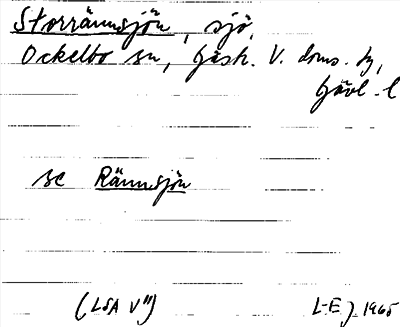 Storrännsjön, sjö,
Ockelbo sn, Gästr. V. doms. hg,
Gävl. l
se Rännsjön
(LSA V")
L-E J 1965